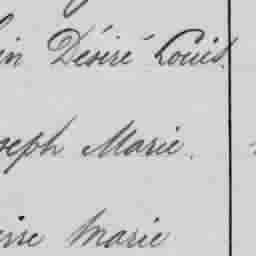 in Désiré Louis.
oseph Marie.
erre Marie